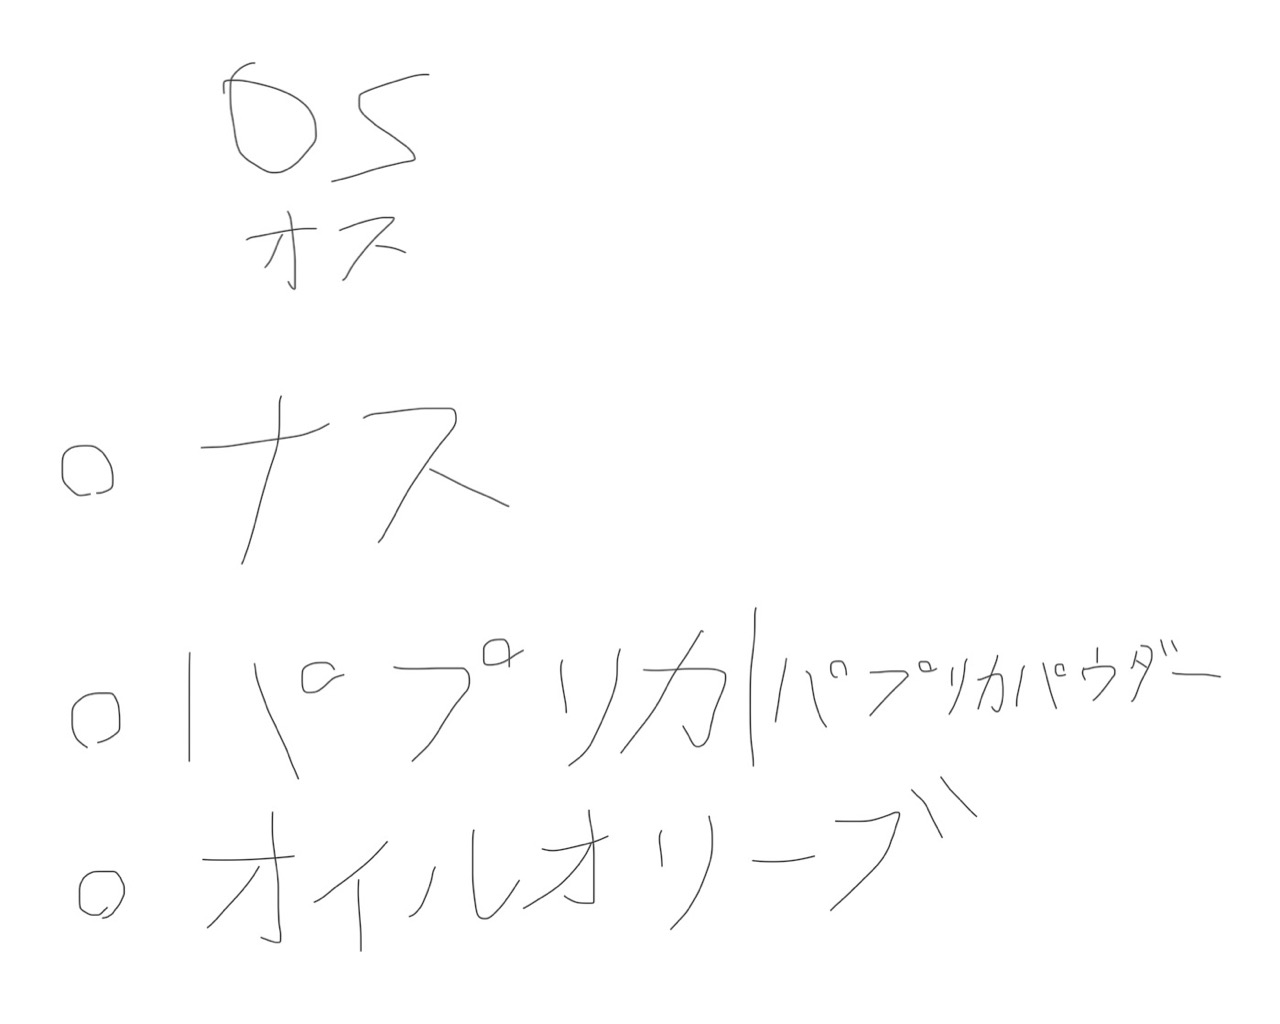 OS
オス
○ ナス
○ パプリカ|パプリカパウダー
○ オイルオリーブ